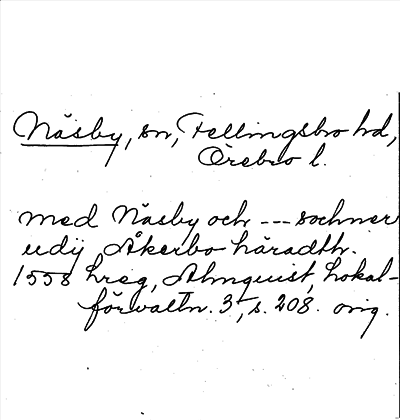 Näsby, sn, Fellingsbro hd,
Örebro l.
med Näsby och --- sochner
udij Åkerbo häradth.
1558 hreg, Almquist, Lokal-
förvaltn. 3, s. 208. orig.